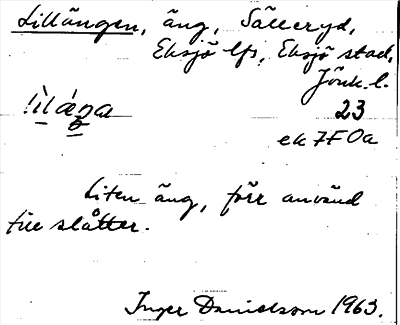 Lillängen, äng, Sälleryd,
Eksjö lfs, Eksjö stad,
Jönk. l.
23
ek 7F 0a
Liten äng, förr använd
till slåtter.
Inger Danielsson 1963.